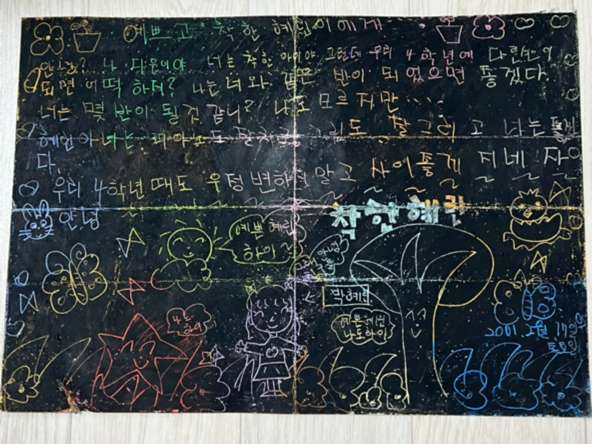 예쁘고 착한 혜린이에게...
안녕? 나 다운이야 너는 착한 아이야. 그런데 우리 4학년에 다른반이
되면 어떡하지? 나는 너와 같은 반이 되었으면 좋겠다.
너는 몇 반이 될 것 같니? 나도 모르지만....
혜린아 너는 피아노도 잘 치고 그림도 잘 그리고 너는 좋겠
다.
우리 4학년 때도 우정 변하지 말고 사이좋게 지내자
안녕
착한 혜린
예쁜 혜린
하이
나도
하이
박혜린
예쁜혜린
나도하이
2001. 2월 17일
토요일